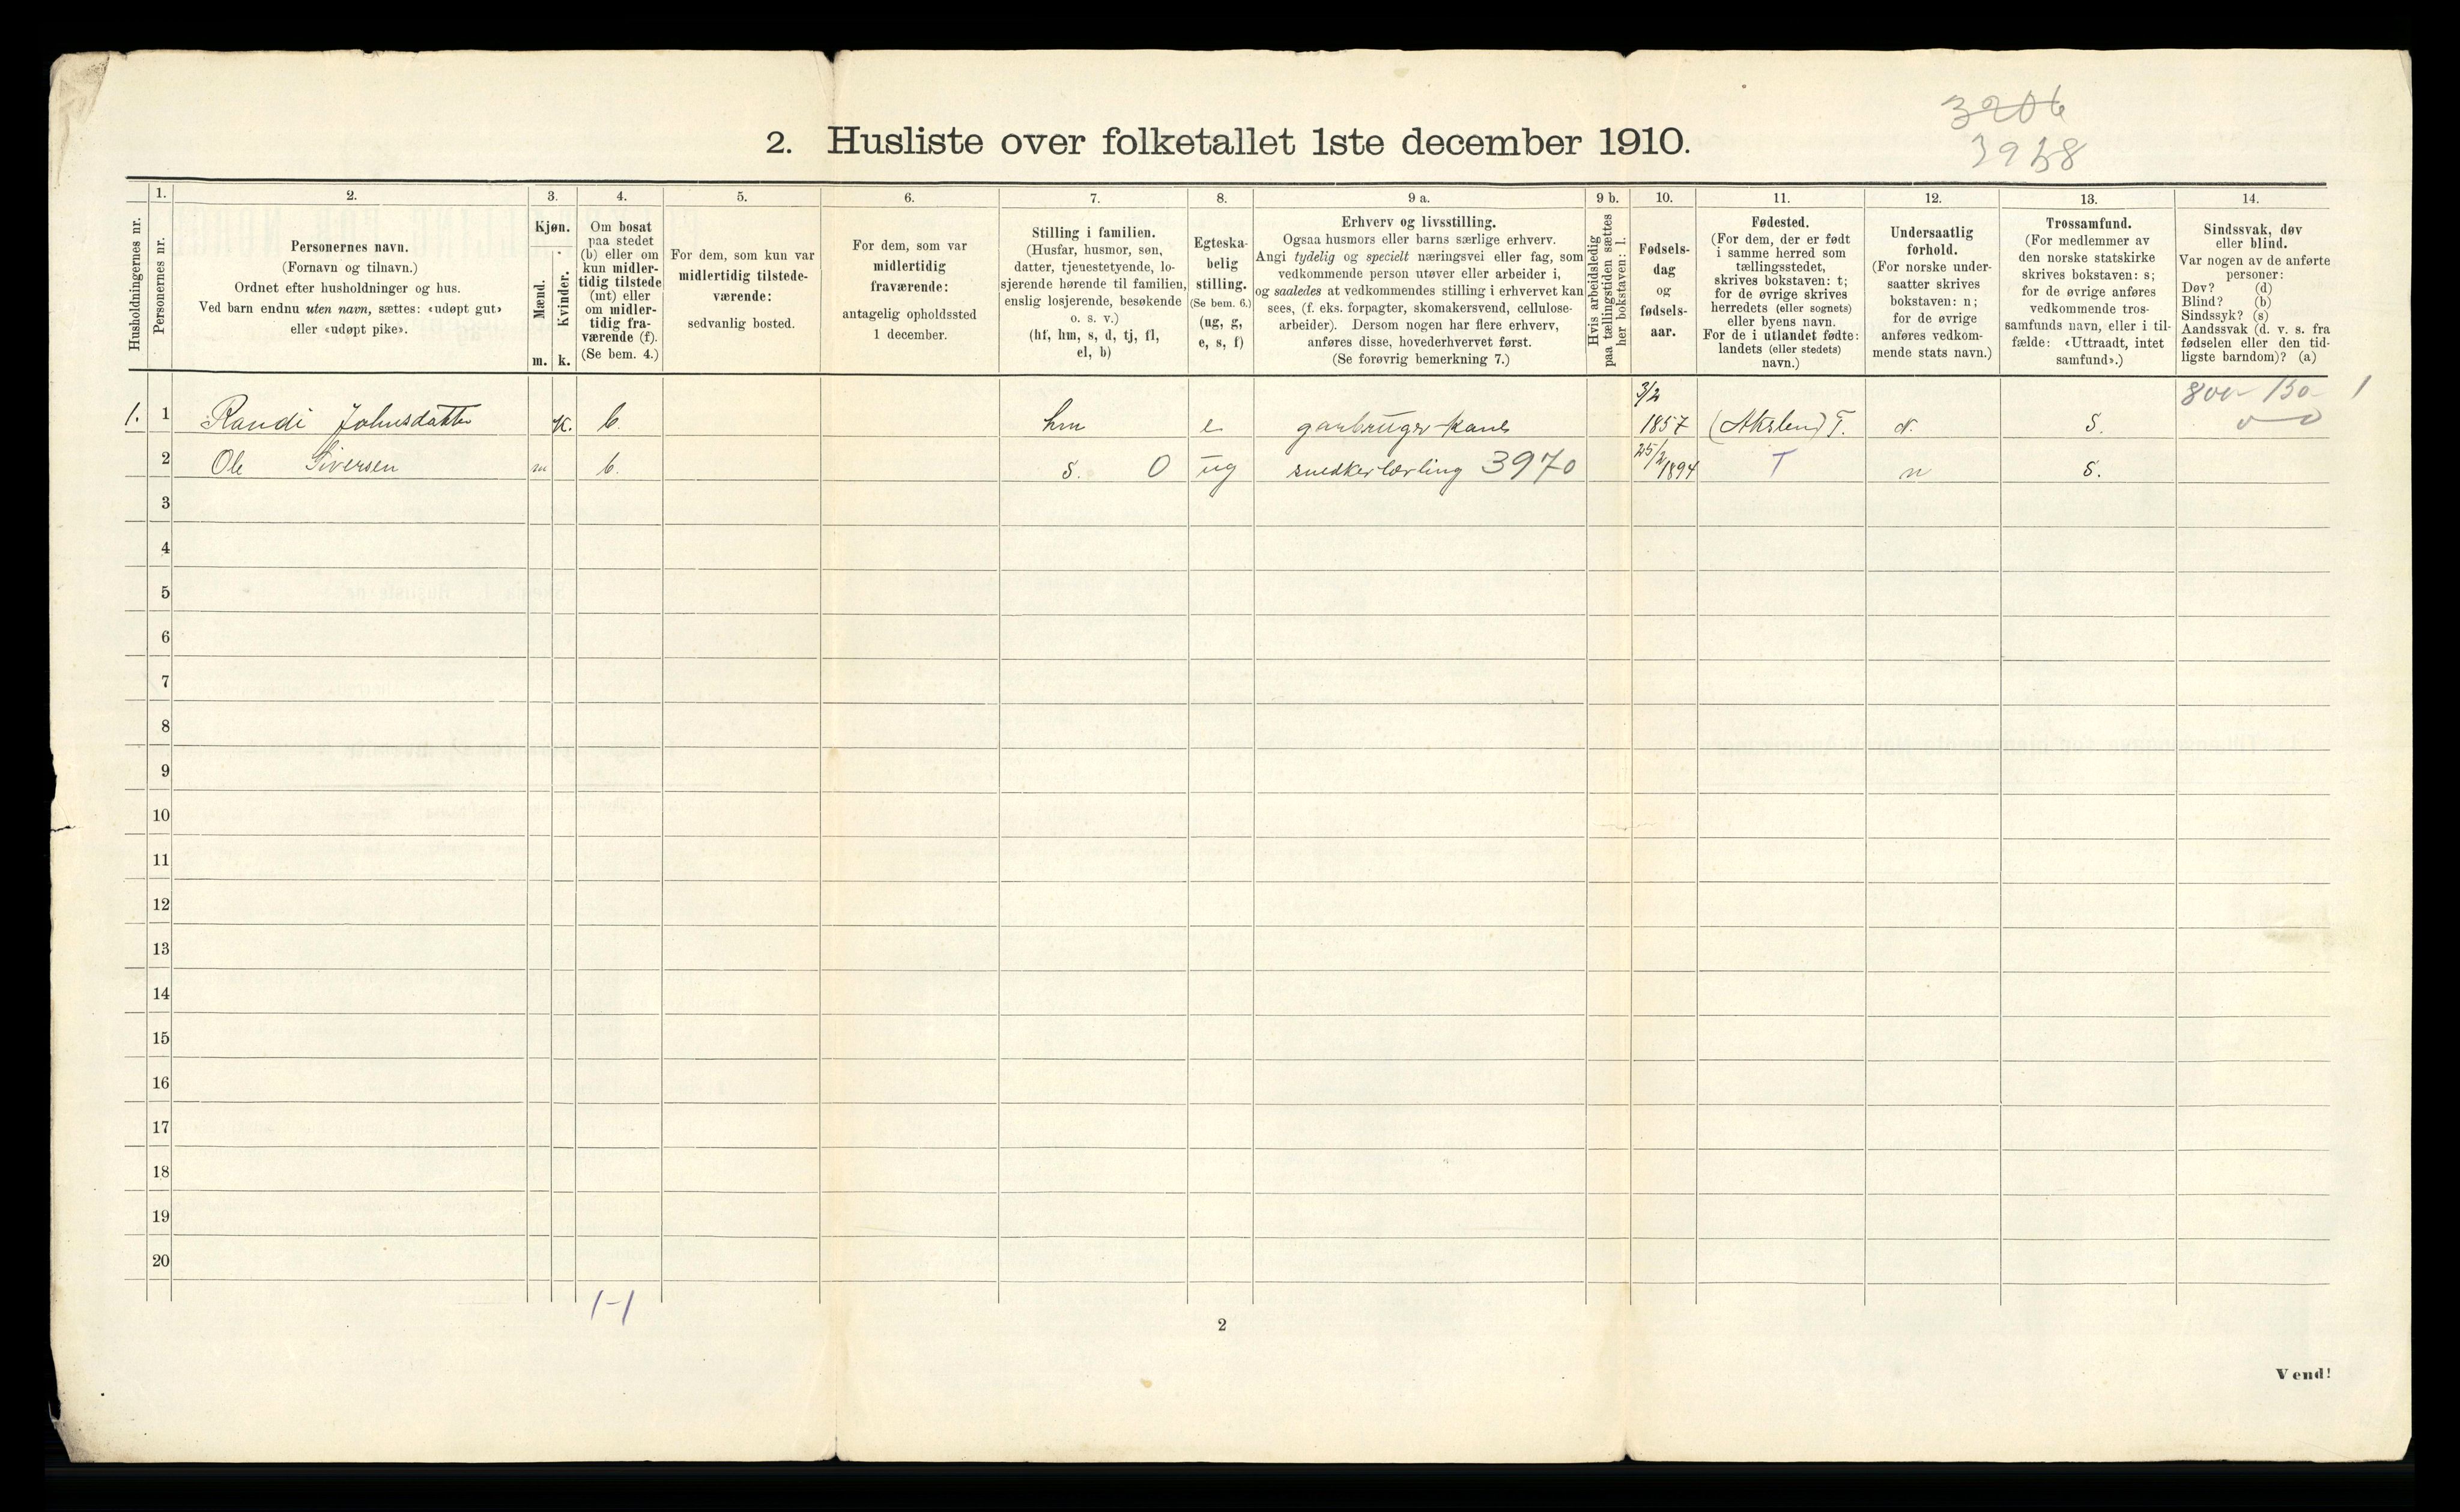 3206
2. Husliste over folketallet 1ste december 1910.
3958
1. 2. 3. 4. 5. 6. 7. 8. 9 a. 9 b. 10. 11. 12. 13. 14.
Husholdningernes nr.
Personernes nr.
Personernes navn.
(Fornavn og tilnavn.)
Ordnet efter husholdninger og hus.
Ved barn endnu uten navn, sættes: «udøpt gut»
eller «udøpt pike».
Kjøn.
Mænd.
Kvinder.
m. k.
Om bosat
paa stedet
(b) eller om
kun midler-
tidig tilstede
(mt) eller
om midler-
tidig fra-
værende (f).
(Se bem. 4.)
For dem, som kun var
midlertidig tilstede-
værende:
sedvanlig bosted.
For dem, som var
midlertidig
fraværende:
antagelig opholdssted
1 december.
Stilling i familien.
(Husfar, husmor, søn,
datter, tjenestetyende, lo-
sjerende hørende til familien,
enslig losjerende, besøkende
o. s. v.)
(hf, hm, s, d, tj, fl,
el, b)
Egteska-
belig
stilling.
(Se bem. 6.)
(ug, g,
e, s, f)
Erhverv og livsstilling.
Ogsaa husmors eller barns særlige erhverv.
Angi tydelig og specielt næringsvei eller fag, som
vedkommende person utøver eller arbeider i,
og saaledes at vedkommendes stilling i erhvervet kan
sees, (f. eks. forpagter, skomakersvend, cellulose-
arbeider). Dersom nogen har flere erhverv,
anføres disse, hovederhvervet først.
(Se forøvrig bemerkning 7.)
Hvis arbeidsledig
paa tællingstiden sættes
her bokstaven: l.
Fødsels-
dag
og
fødsels-
aar.
Fødested.
(For dem, der er født
i samme herred som
tællingsstedet,
skrives bokstaven: t;
for de øvrige skrives
herredets (eller sognets)
eller byens navn.
For de i utlandet fødte:
landets (eller stedets)
navn.)
Undersaatlig
forhold.
(For norske under-
saatter skrives
bokstaven: n;
for de øvrige
anføres vedkom-
mende stats navn.)
Trossamfund.
(For medlemmer av
den norske statskirke
skrives bokstaven: s;
for de øvrige anføres
vedkommende tros-
samfunds navn, eller i til-
fælde: «Uttraadt, intet
samfund».)
Sindssvak, døv
eller blind.
Var nogen av de anførte
personer:
Døv? (d)
Blind? (b)
Sindssyk? (s)
Aandssvak (d. v. s. fra
fødselen eller den tid-
ligste barndom)? (a)
3/2 800 - 150 - 1
1. 1 Randi Johnsdatter k. b. hm e garbruger-kane 1857 T. n. S. 0 0
2 Ole Siversen m b. s. 0 ug snedkerlærling 3970 25/2 1894 T n S.
3
4
5
6
7
8
9
10
11
12
13
14
15
16
17
18
19
20
1-1
2
Vend!